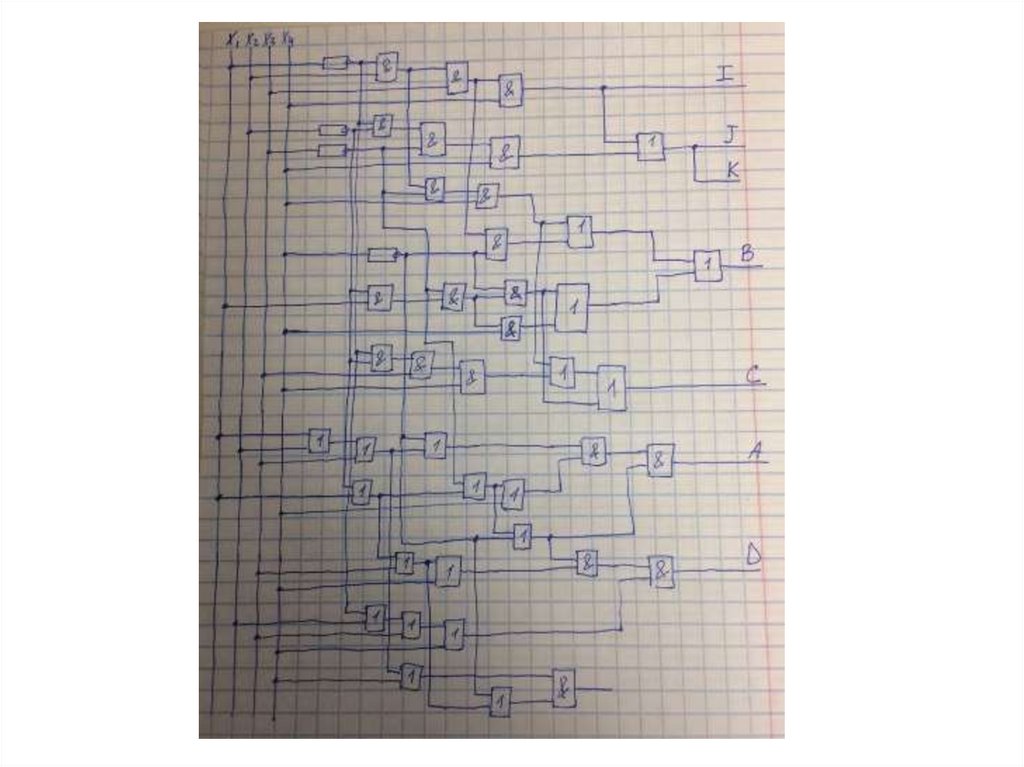 X₁ X₂ X₃ X₄
& & & I
& & & 1 J
K
& &
& 1 B
1
& & & 1
&
& & & 1 1 C
1 1 1 & & A
1 1 1
1
1 1 & & D
1 1 1
1 1 &